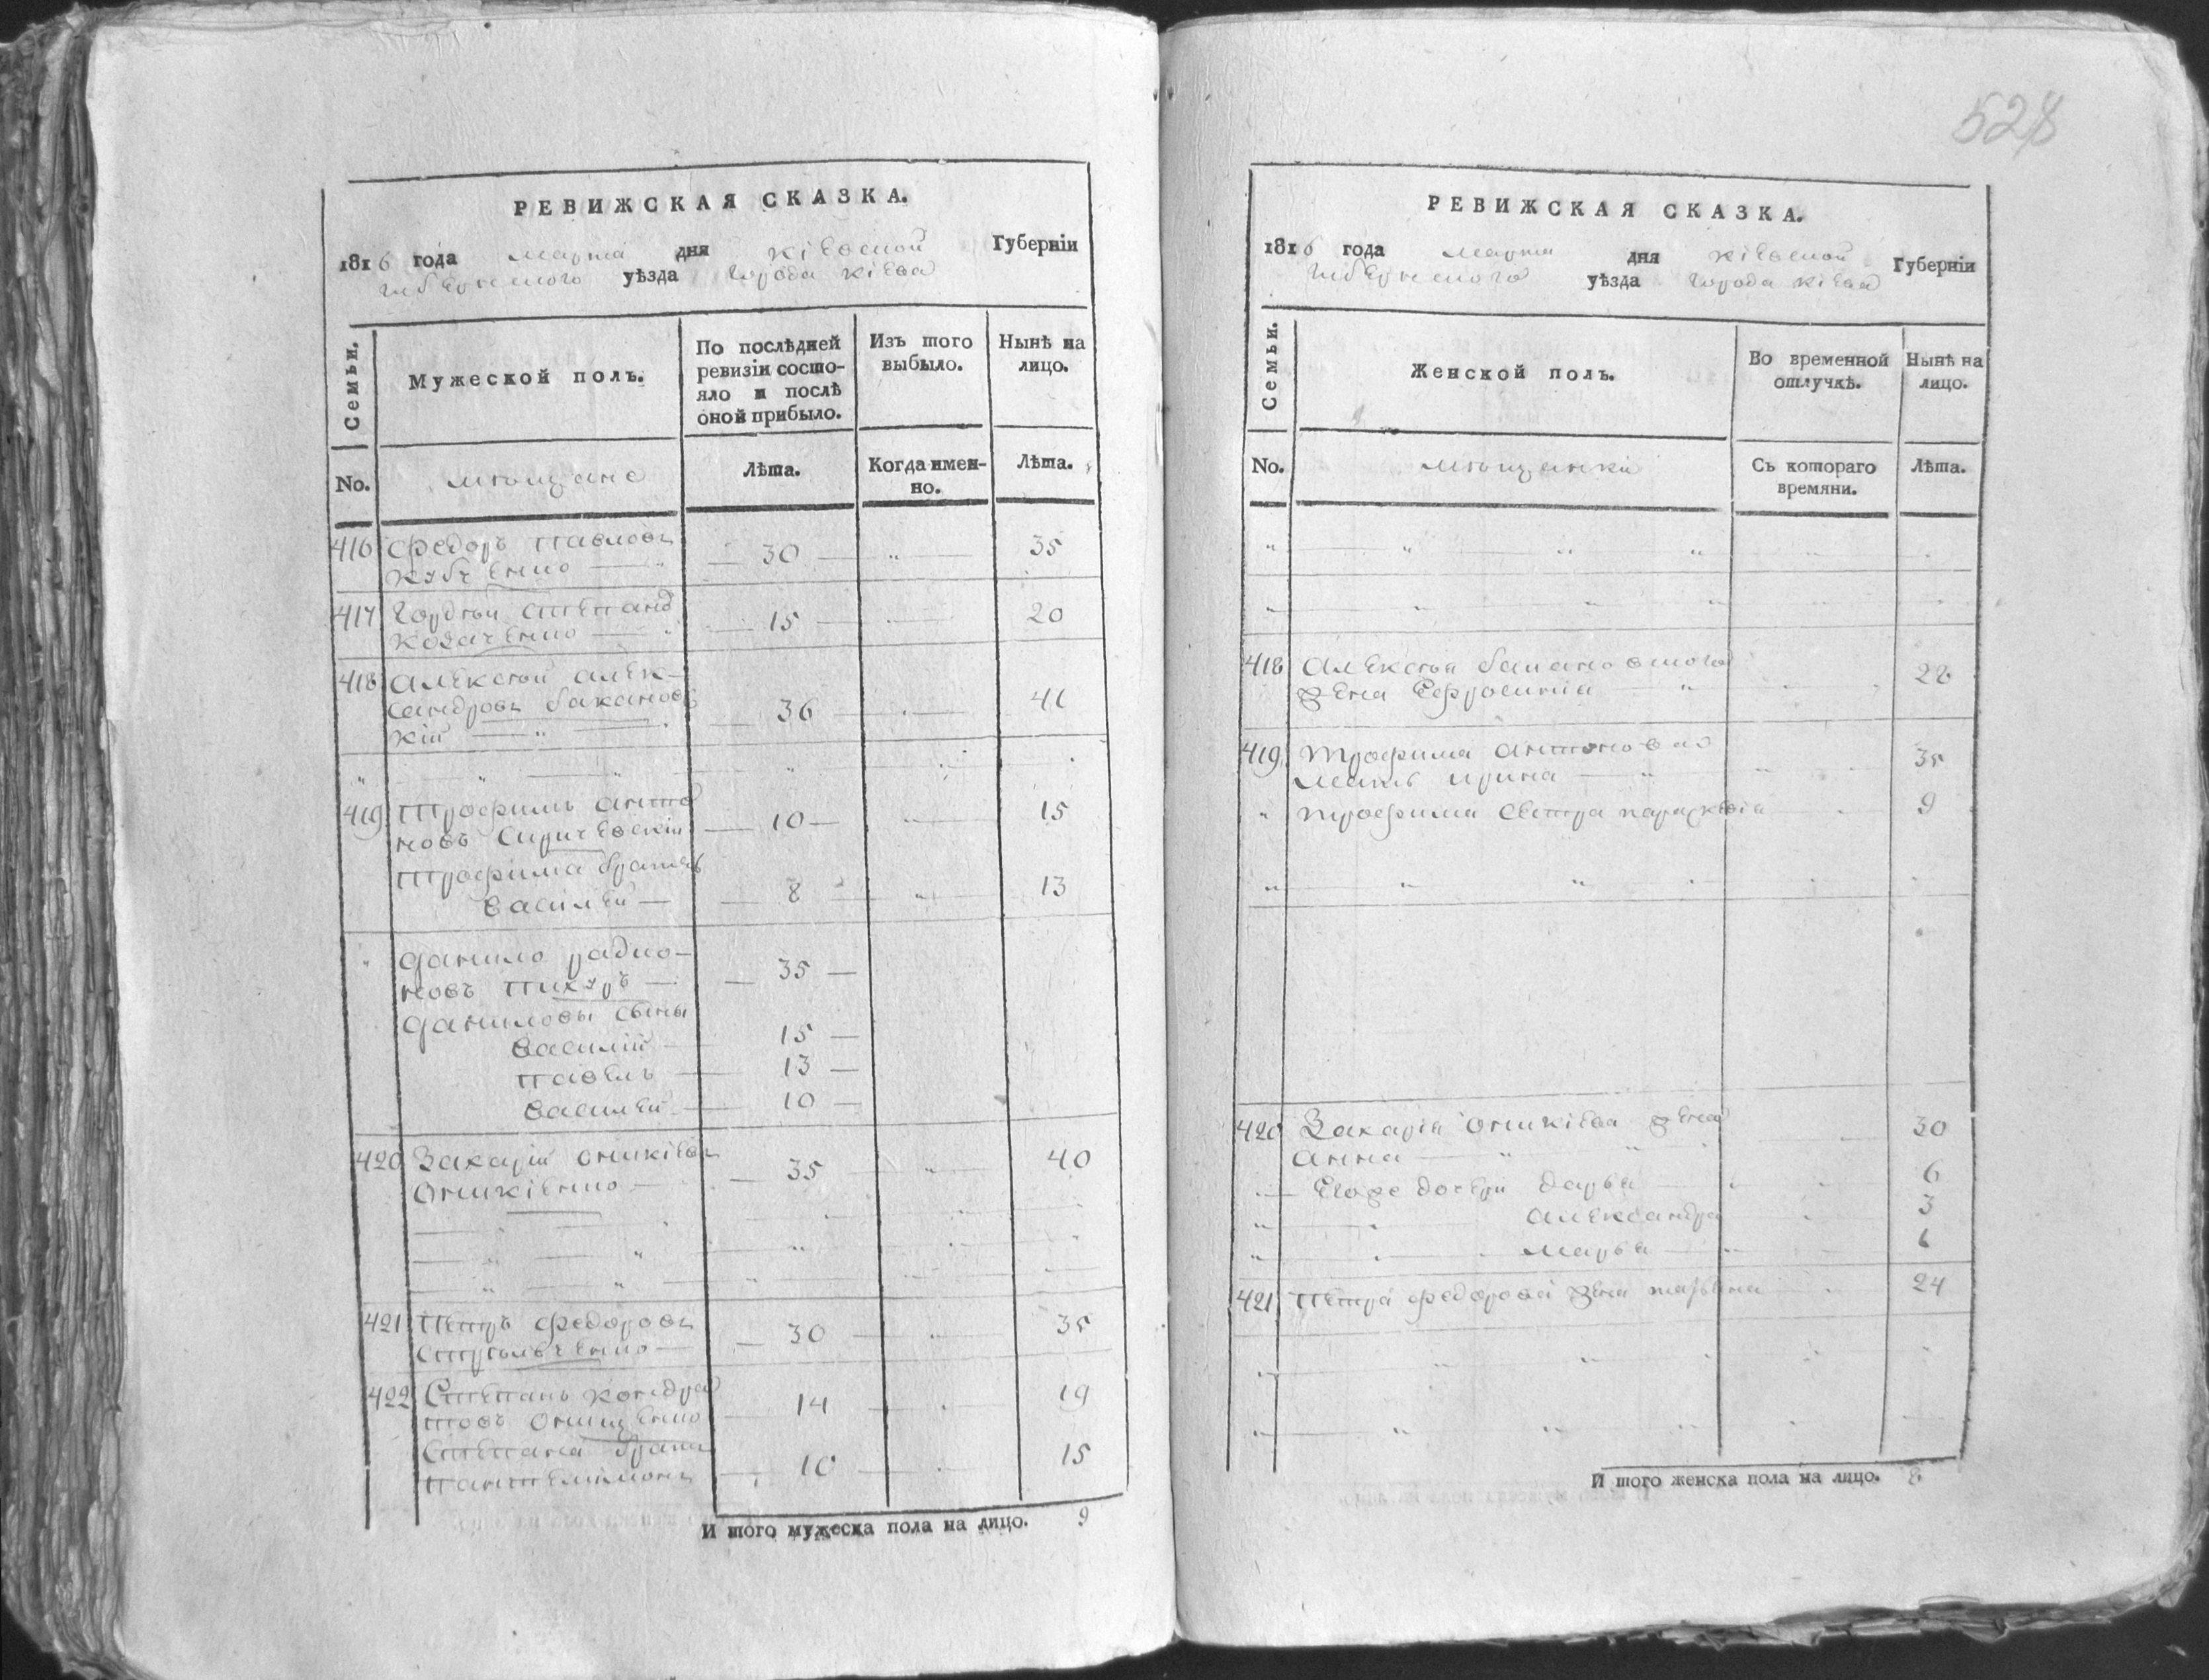 РЕВИЖСКАЯ СКАЗКА.
1816 года марта дня кіевской Губерніи
уѣзда города кіева
Семьи.
Мужеской полъ.
По послѣдней
ревизіи состо-
яло и послѣ
оной прибыло.
Изъ того
выбыло.
Нынѣ на
лицо.
No.
мещане
Лѣта.
Когда имен-
но.
Лѣта.
416 Федоръ павловъ
30 35
417 Гордѣй степанов
козаченко 15 20
418 алексѣй алек-
сандровъ бакановс
кій 36 41
419 Трофимъ анто
новъ Сиричевскій 10 15
Трофима братъ
василей 8 13
данило радио-
новъ пикуръ 35
даниловы сыны
василій 15
павелъ 13
василей 10
420 Захарій оникіевъ
оникіенко 35 40
421 петръ федоровъ
стрѣльченко 30 35
422 Степанъ кондра
товъ онищенко 14 19
степана братъ
пантелимонъ 10 15
И того мужеска пола на лицо. 9
528
РЕВИЖСКАЯ СКАЗКА.
1816 года марта дня кіевской Губерніи
уѣзда города кіева
Семьи.
Женской полъ.
Во временной
отлучкѣ.
Нынѣ на
лицо.
No.
мещанки
Съ котораго
времяни.
Лѣта.
418 алексѣя бакановского
жена Ефросиніа 28
419 трофима антонова
мать ирина 35
трофима сестра параскевіа 9
420 Захаріа оникіева жена
анна 30
Егоже дочери дарья 6
александра 3
марья
421 петра федорова жена татьяна 24
И того женска пола на лицо. 8